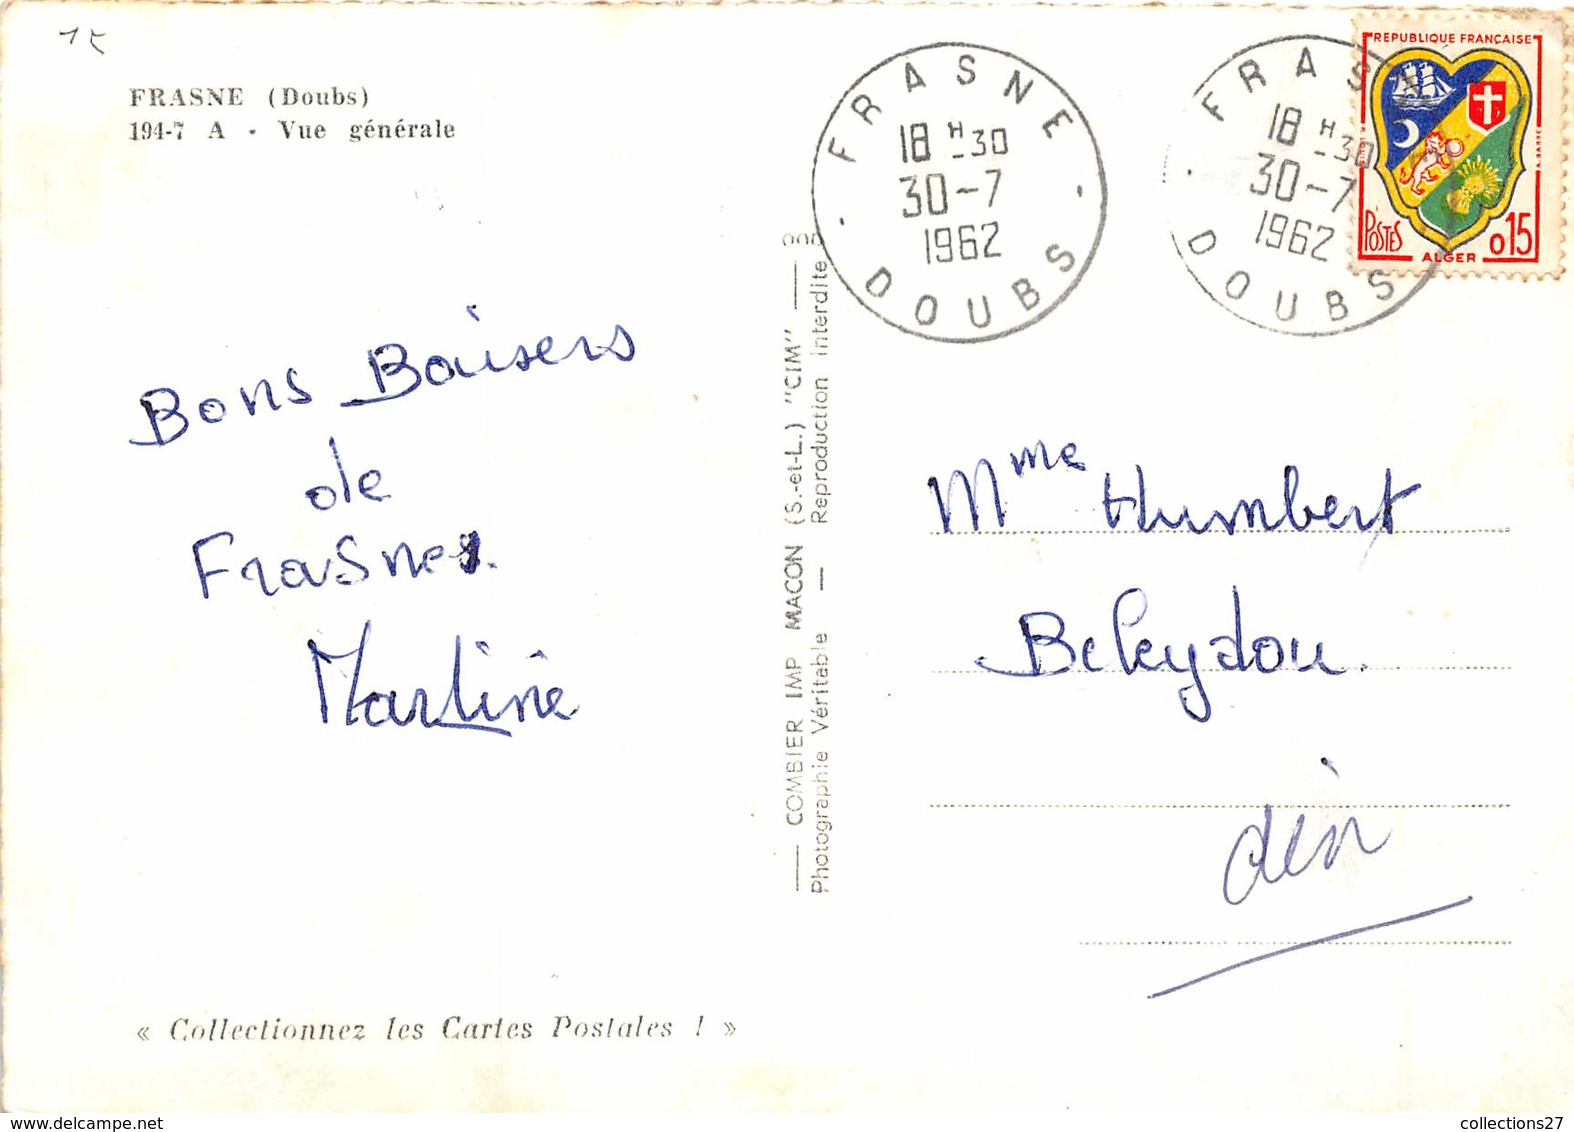 15
FRASNE (Doubs)
194-7 A - Vue générale
Bons Baisers
de
Frasnes.
Martine
« Collectionnez les Cartes Postales ! »
COMBIER IMP MACON (S.-et-L.) "CIM"
Photographie Véritable — Reproduction Interdite
FRASNE
18 H -30
30-7
1962
DOUBS
FRASNE
18 H -30
30-7
1962
DOUBS
REPUBLIQUE FRANÇAISE
POSTES
ALGER
0,15
A. BARRE
Mme Humbert
Ain
collections27